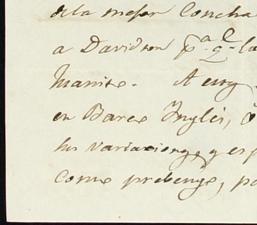 de la mejor Concha
a Davidson pa. q. la
Manise. A
en Barco Ingles,
las variaciones, y es p
como prevengo, pa